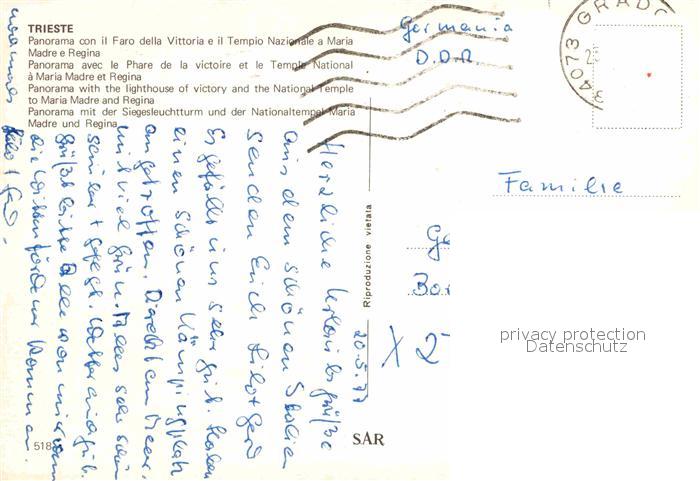 TRIESTE
Panorama con il Faro della Vittoria e il Tempio Nazionale a Maria
Madre e Regina
Panorama avec le Phare de la victoire et le Temple National
à Maria Madre et Regina
Panorama with the lighthouse of victory and the National Temple
to Maria Madre and Regina
Panorama mit der Siegesleuchtturm und der Nationaltempel Maria
Madre und Regina
Germania
D.D.R
34073 GRADO
Familie
Riproduzione vietata
20.5.77
Herzliche Urlaubsgrüße
aus dem schönen Italien
senden Euch Lilo + Gerd
Es gefällt uns sehr gut. Haben
einen schönen Kämpingplatz
angetroffen. Direkt am Meer.
mit viel grün. Alles sehr schön
sauber + gepfl. Wetter auch gut.
die
Lilo + Gerd.
X 2
518
SAR
privacy protection
Datenschutz